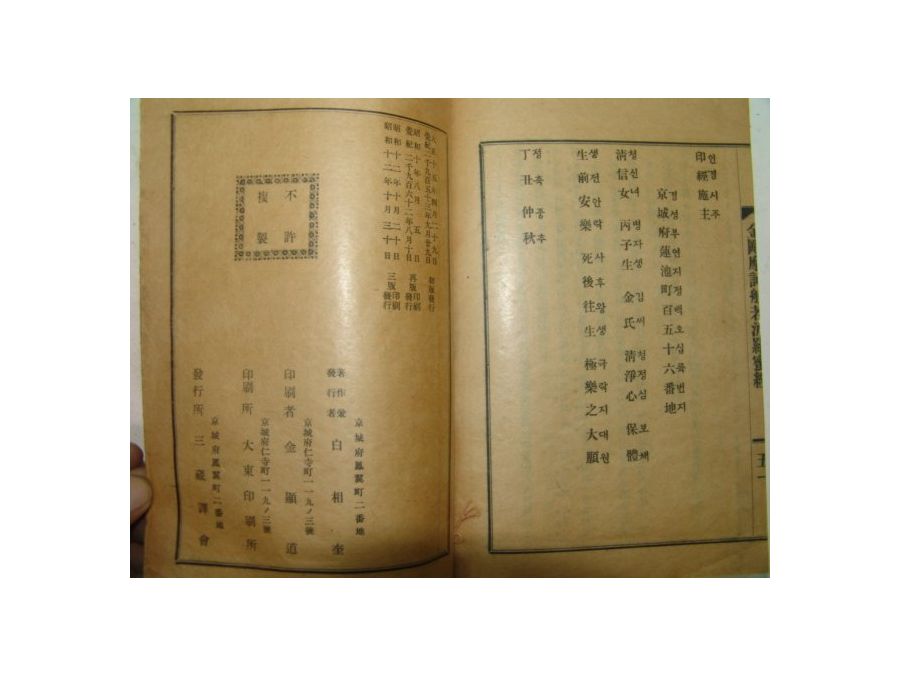 金剛摩訶般若波羅蜜經
五一
인경시주
印經施主
경성부연지정백오십륙번지
京城府蓮池町百五十六番地
청신녀 병자생 김씨 청정심 보체
淸信女 丙子生 金氏 淸淨心 保體
생전안락 사후왕생 극락지대원
生前安樂 死後往生 極樂之大願
정축 중추
丁丑 仲秋
大正十五年四月二十九日
紀二千九百五十三年九月廿九日 初版發行
昭和十年八月五日 再版印刷
紀二千九百六十二年八月十日 發行
昭和十二年十月二十日 三版印刷
昭和十二年十月三十日 發行
不許
複製
京城府鳳翼町二番地
著作兼
發行者 白相奎
京城府仁寺町一一九ノ三號
印刷者 金顯道
京城府仁寺町一一九ノ三號
印刷所 大東印刷所
京城府鳳翼町二番地
發行所 三藏譯會